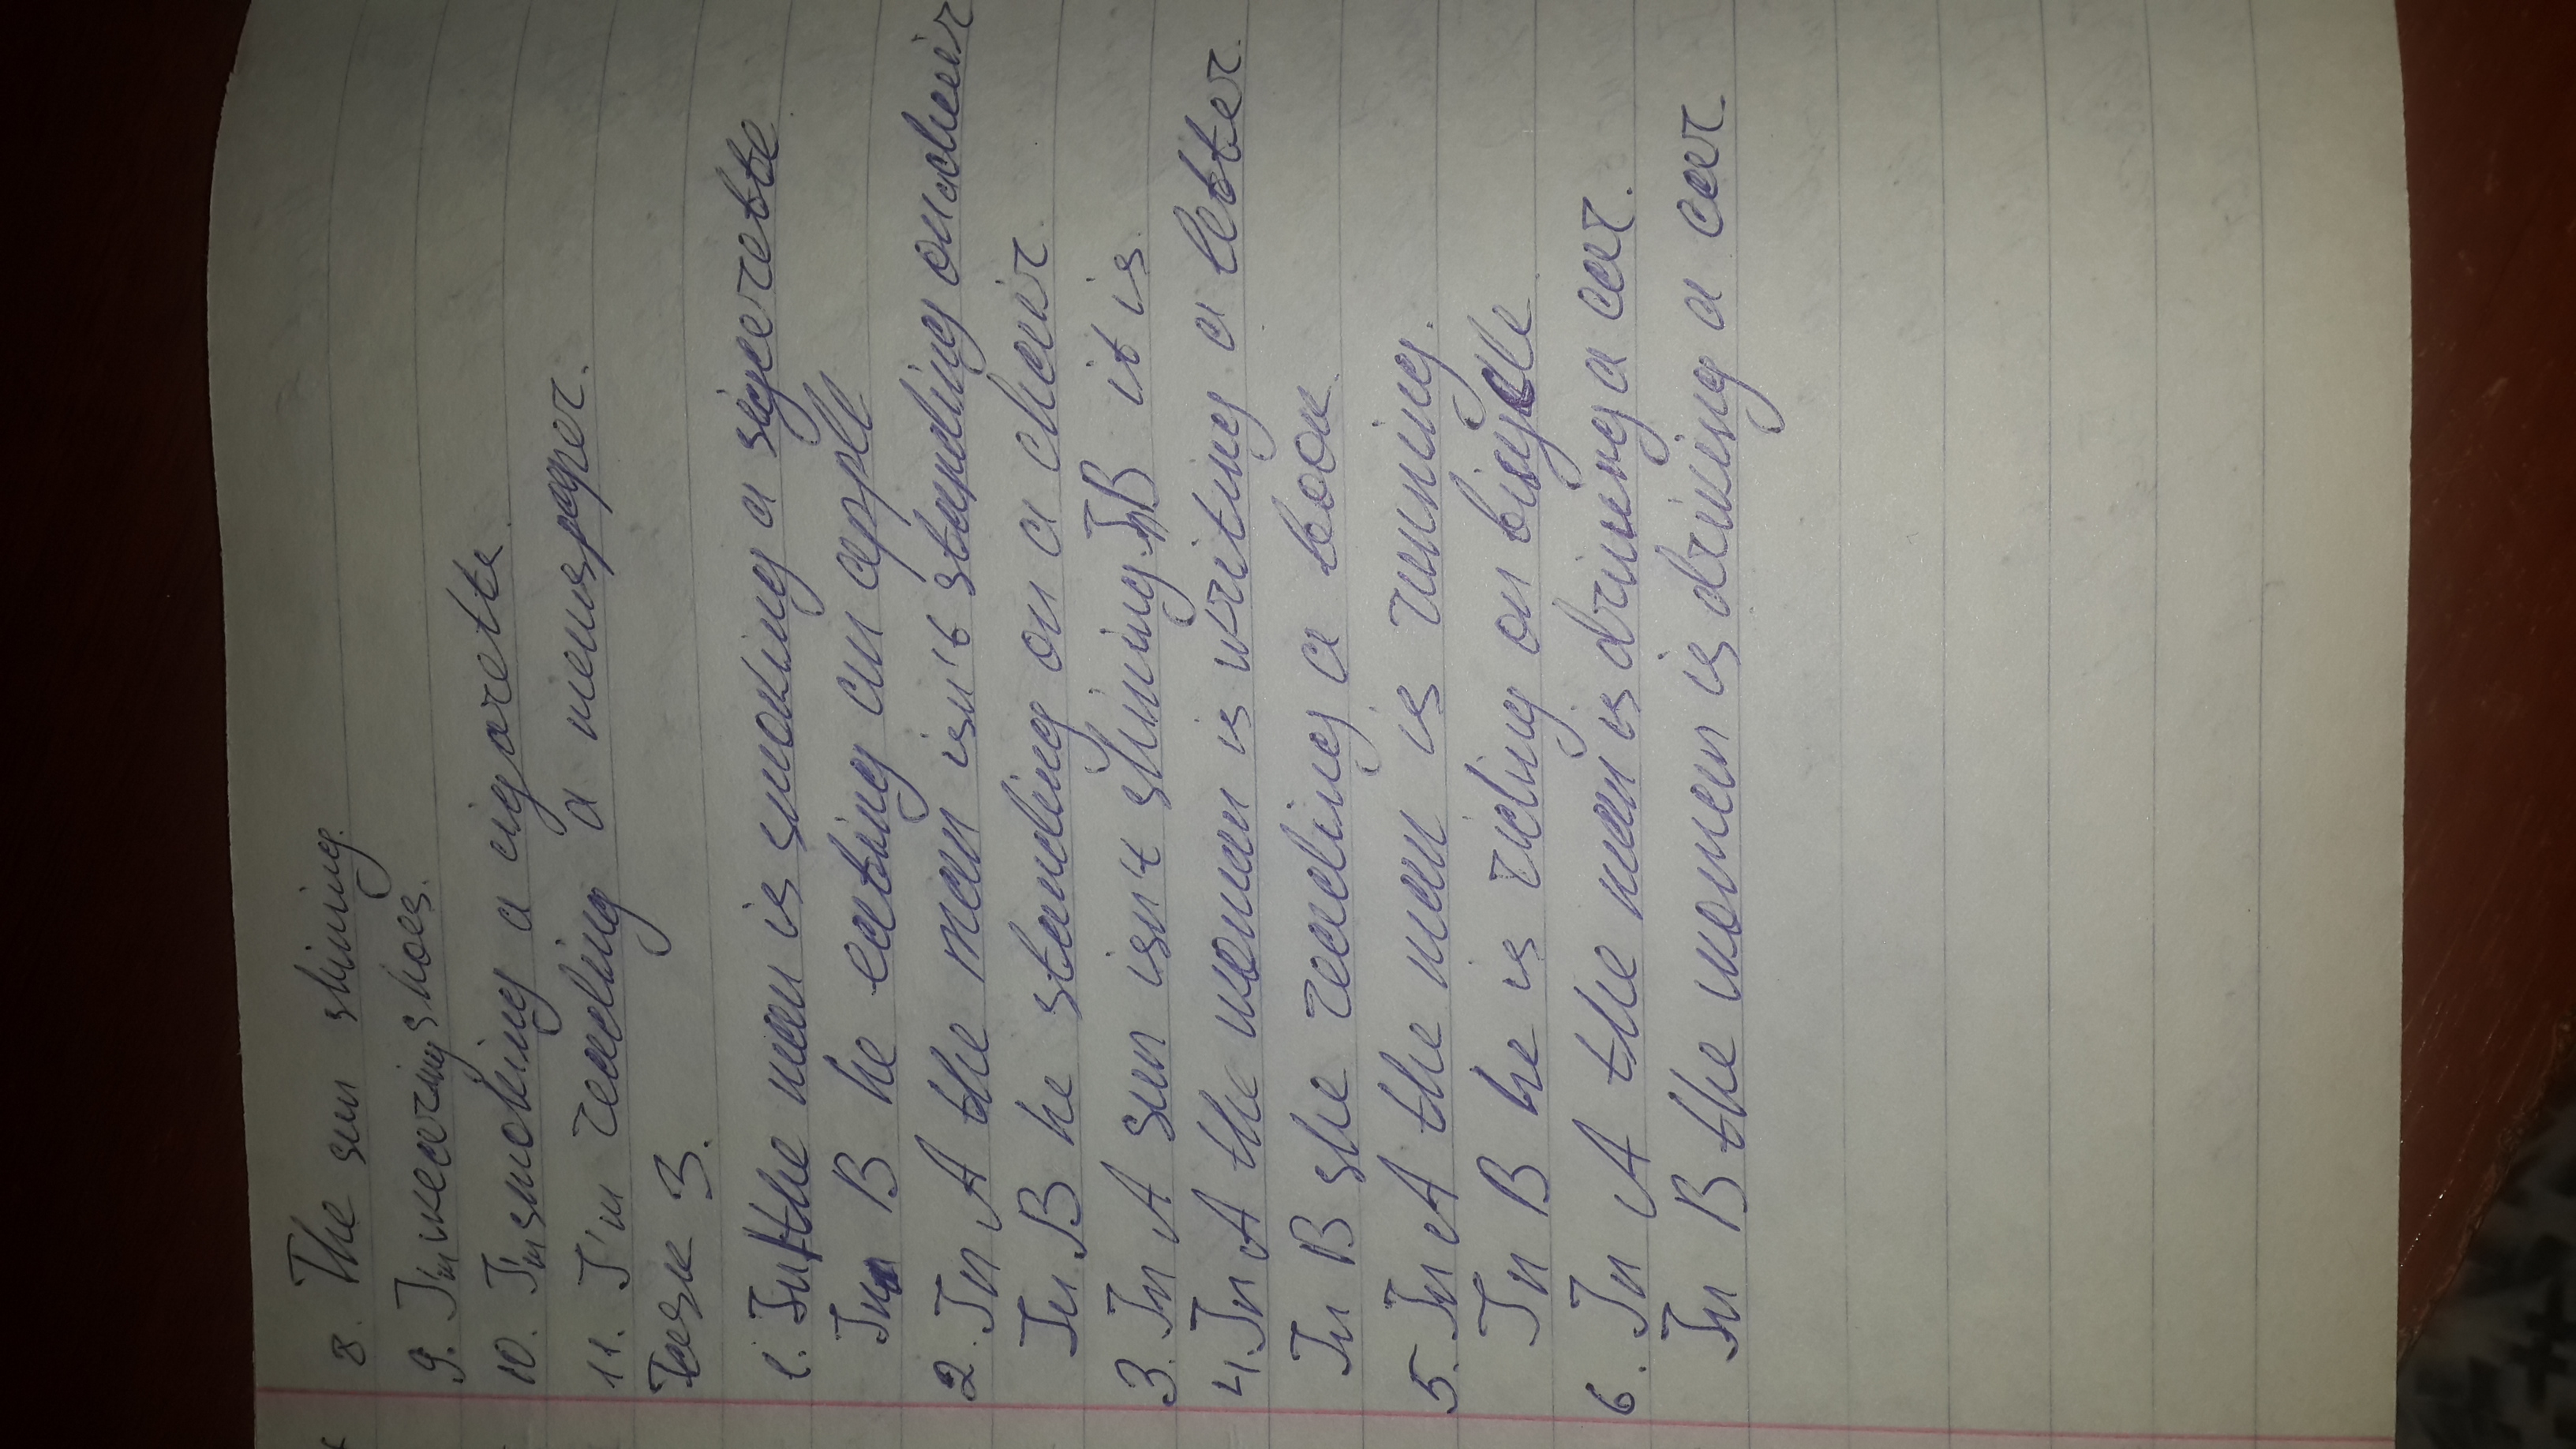 8. The sun shining.
9. I'm wearing shoes.
10. I'm smoking a cigarette.
11. I'm reading a newspaper.
Task 3.
1. In A the man is smoking a sigarette
In B he eating an apple
2. In A the man isn't standing on a chair
In B he standing on a chair.
3. In A sun isn't shining. In B it is.
4. In A the woman is writing a letter.
In B she reading a book.
5. In A the man is running.
In B he is riding on bicycle
6. In A the man is driving a car.
In B the woman is driving a car.